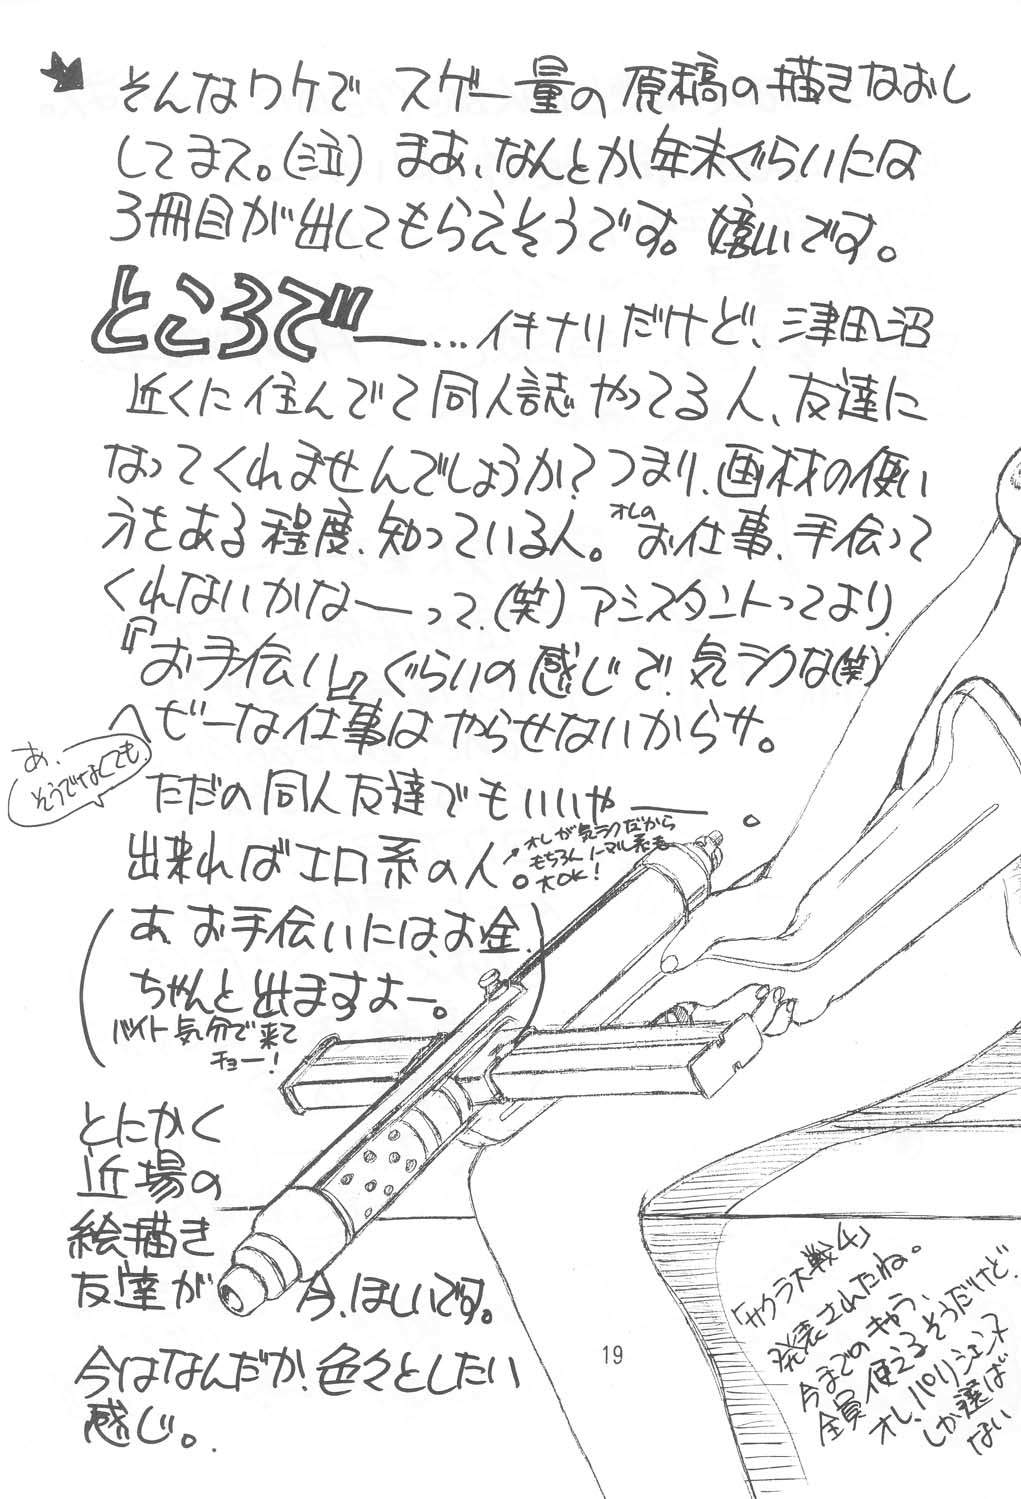 そんなワケで スゲー量の原稿の描きなおし
してまス。(泣) まあ、なんとか年末ぐらいには
3冊目が出してもらえそうです。嬉しいです。
ところでー…イキナリだけど、津田沼
近くに住んでて同人誌やってる人、友達に
なってくれませんでしょうか?つまり、画材の使い
方をある程度、知っている人。オレのお仕事、手伝って
くれないかなーーって、(笑) アシスタントってより、
『お手伝い』ぐらいの感じで!気ラクな(笑)
ヘビーな仕事はやらせないからサ。
あ、そうでなくても、
ただの同人友達でもいいやー。
出来ればエロ系の人。
→オレが気ラクだから
もちろんノーマル系も
大OK!
(あ、お手伝いには、お金、
ちゃんと出ますよー。
バイト気分で来て
チョー!)
とにかく
近場の
絵描き
友達が 今、ほしいです。
今はなんだか、色々としたい
感じ。
「サクラ大戦4」
発表されたね。
今までのキャラ、
全員使えるそうだけど、
オレ、パリシャンヌ
しか選ば
ない
19